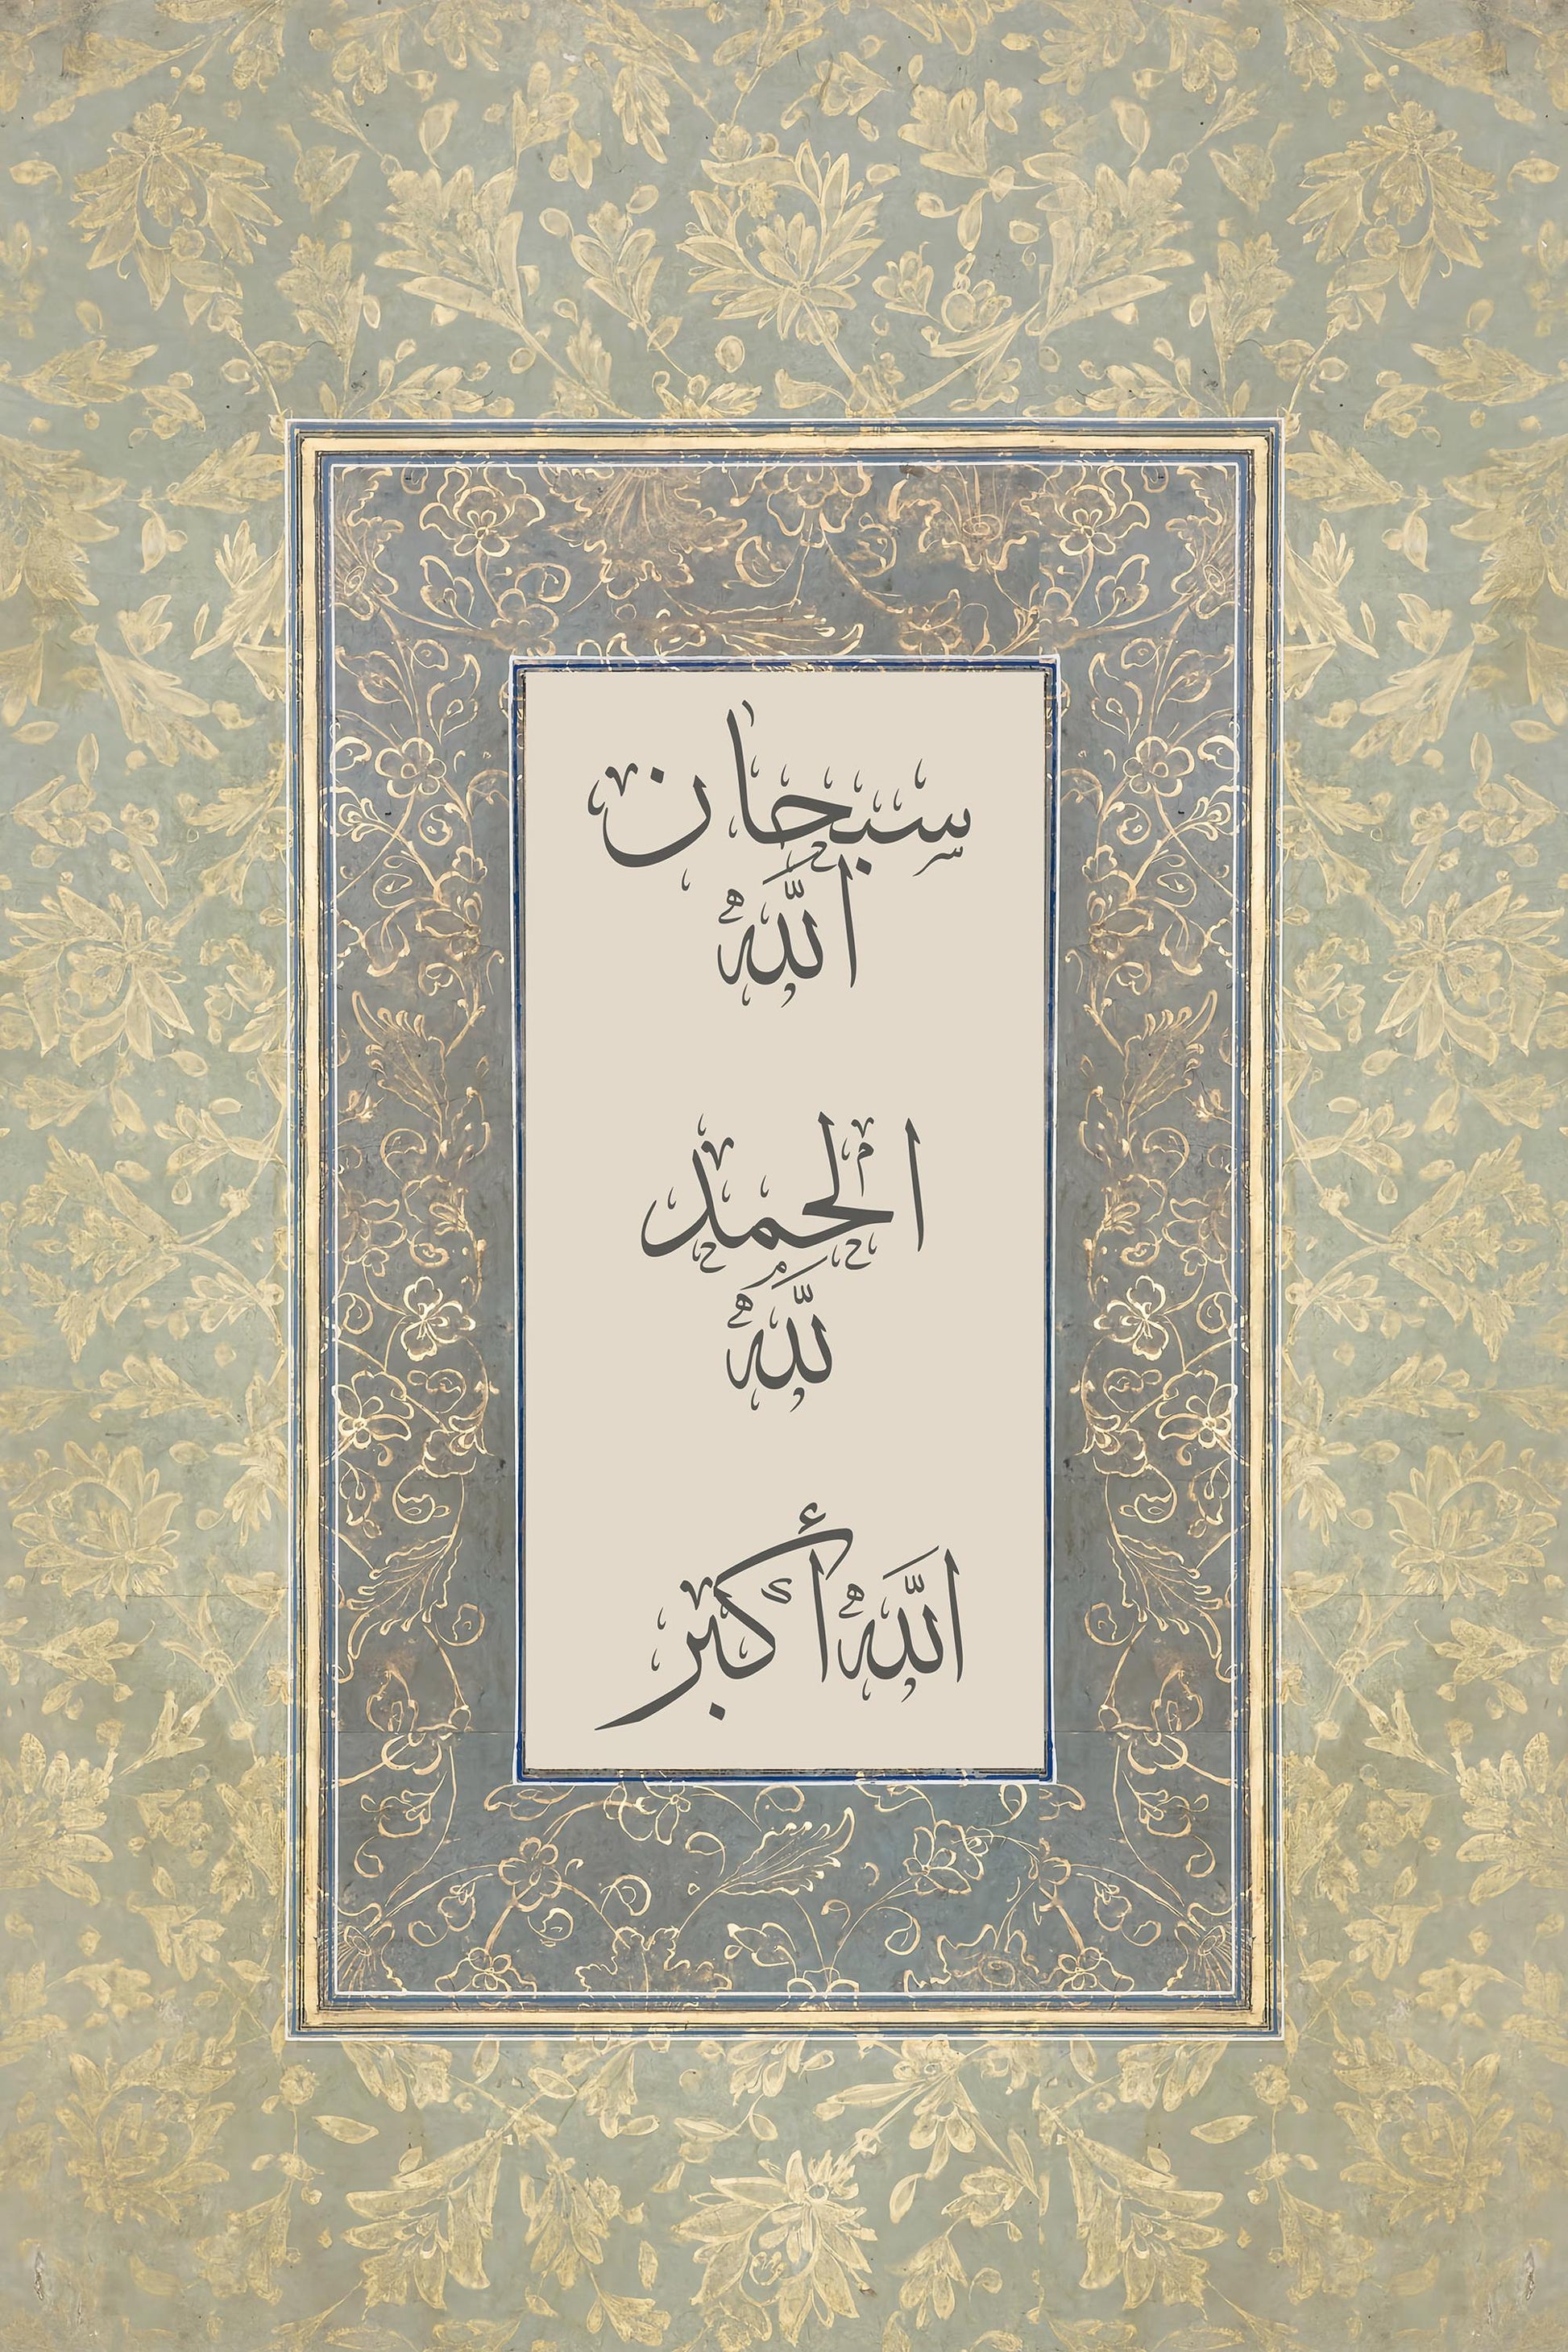 سبحان
اللّٰه
الحمد
للّٰه
اللّٰه أكبر